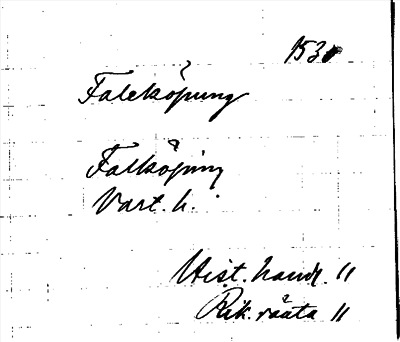 1530
Faleköpung
Falköping
Vart. h.
Hist. handl. 11
Rik. räata 11